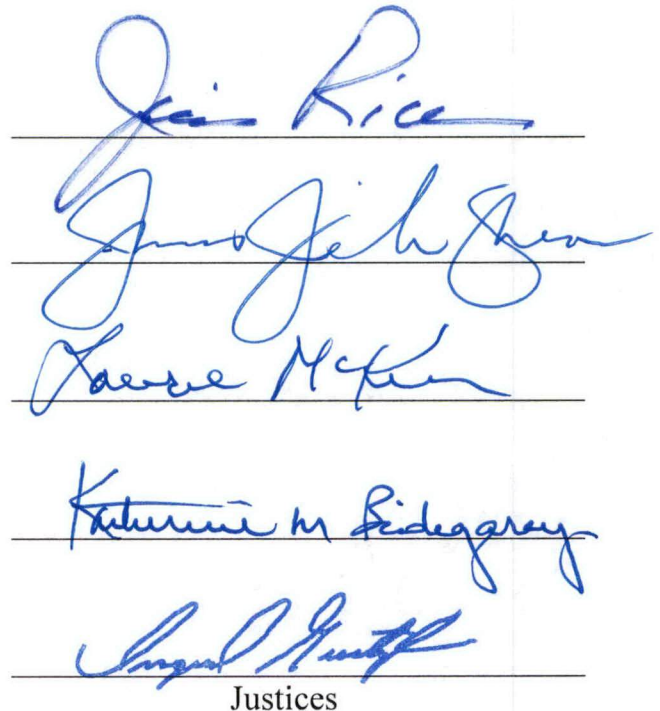 Jim Rice
James Jeremiah Shea
Laurie McKinnon
Katherine M Bidegaray
Ingrid Gustafson
Justices